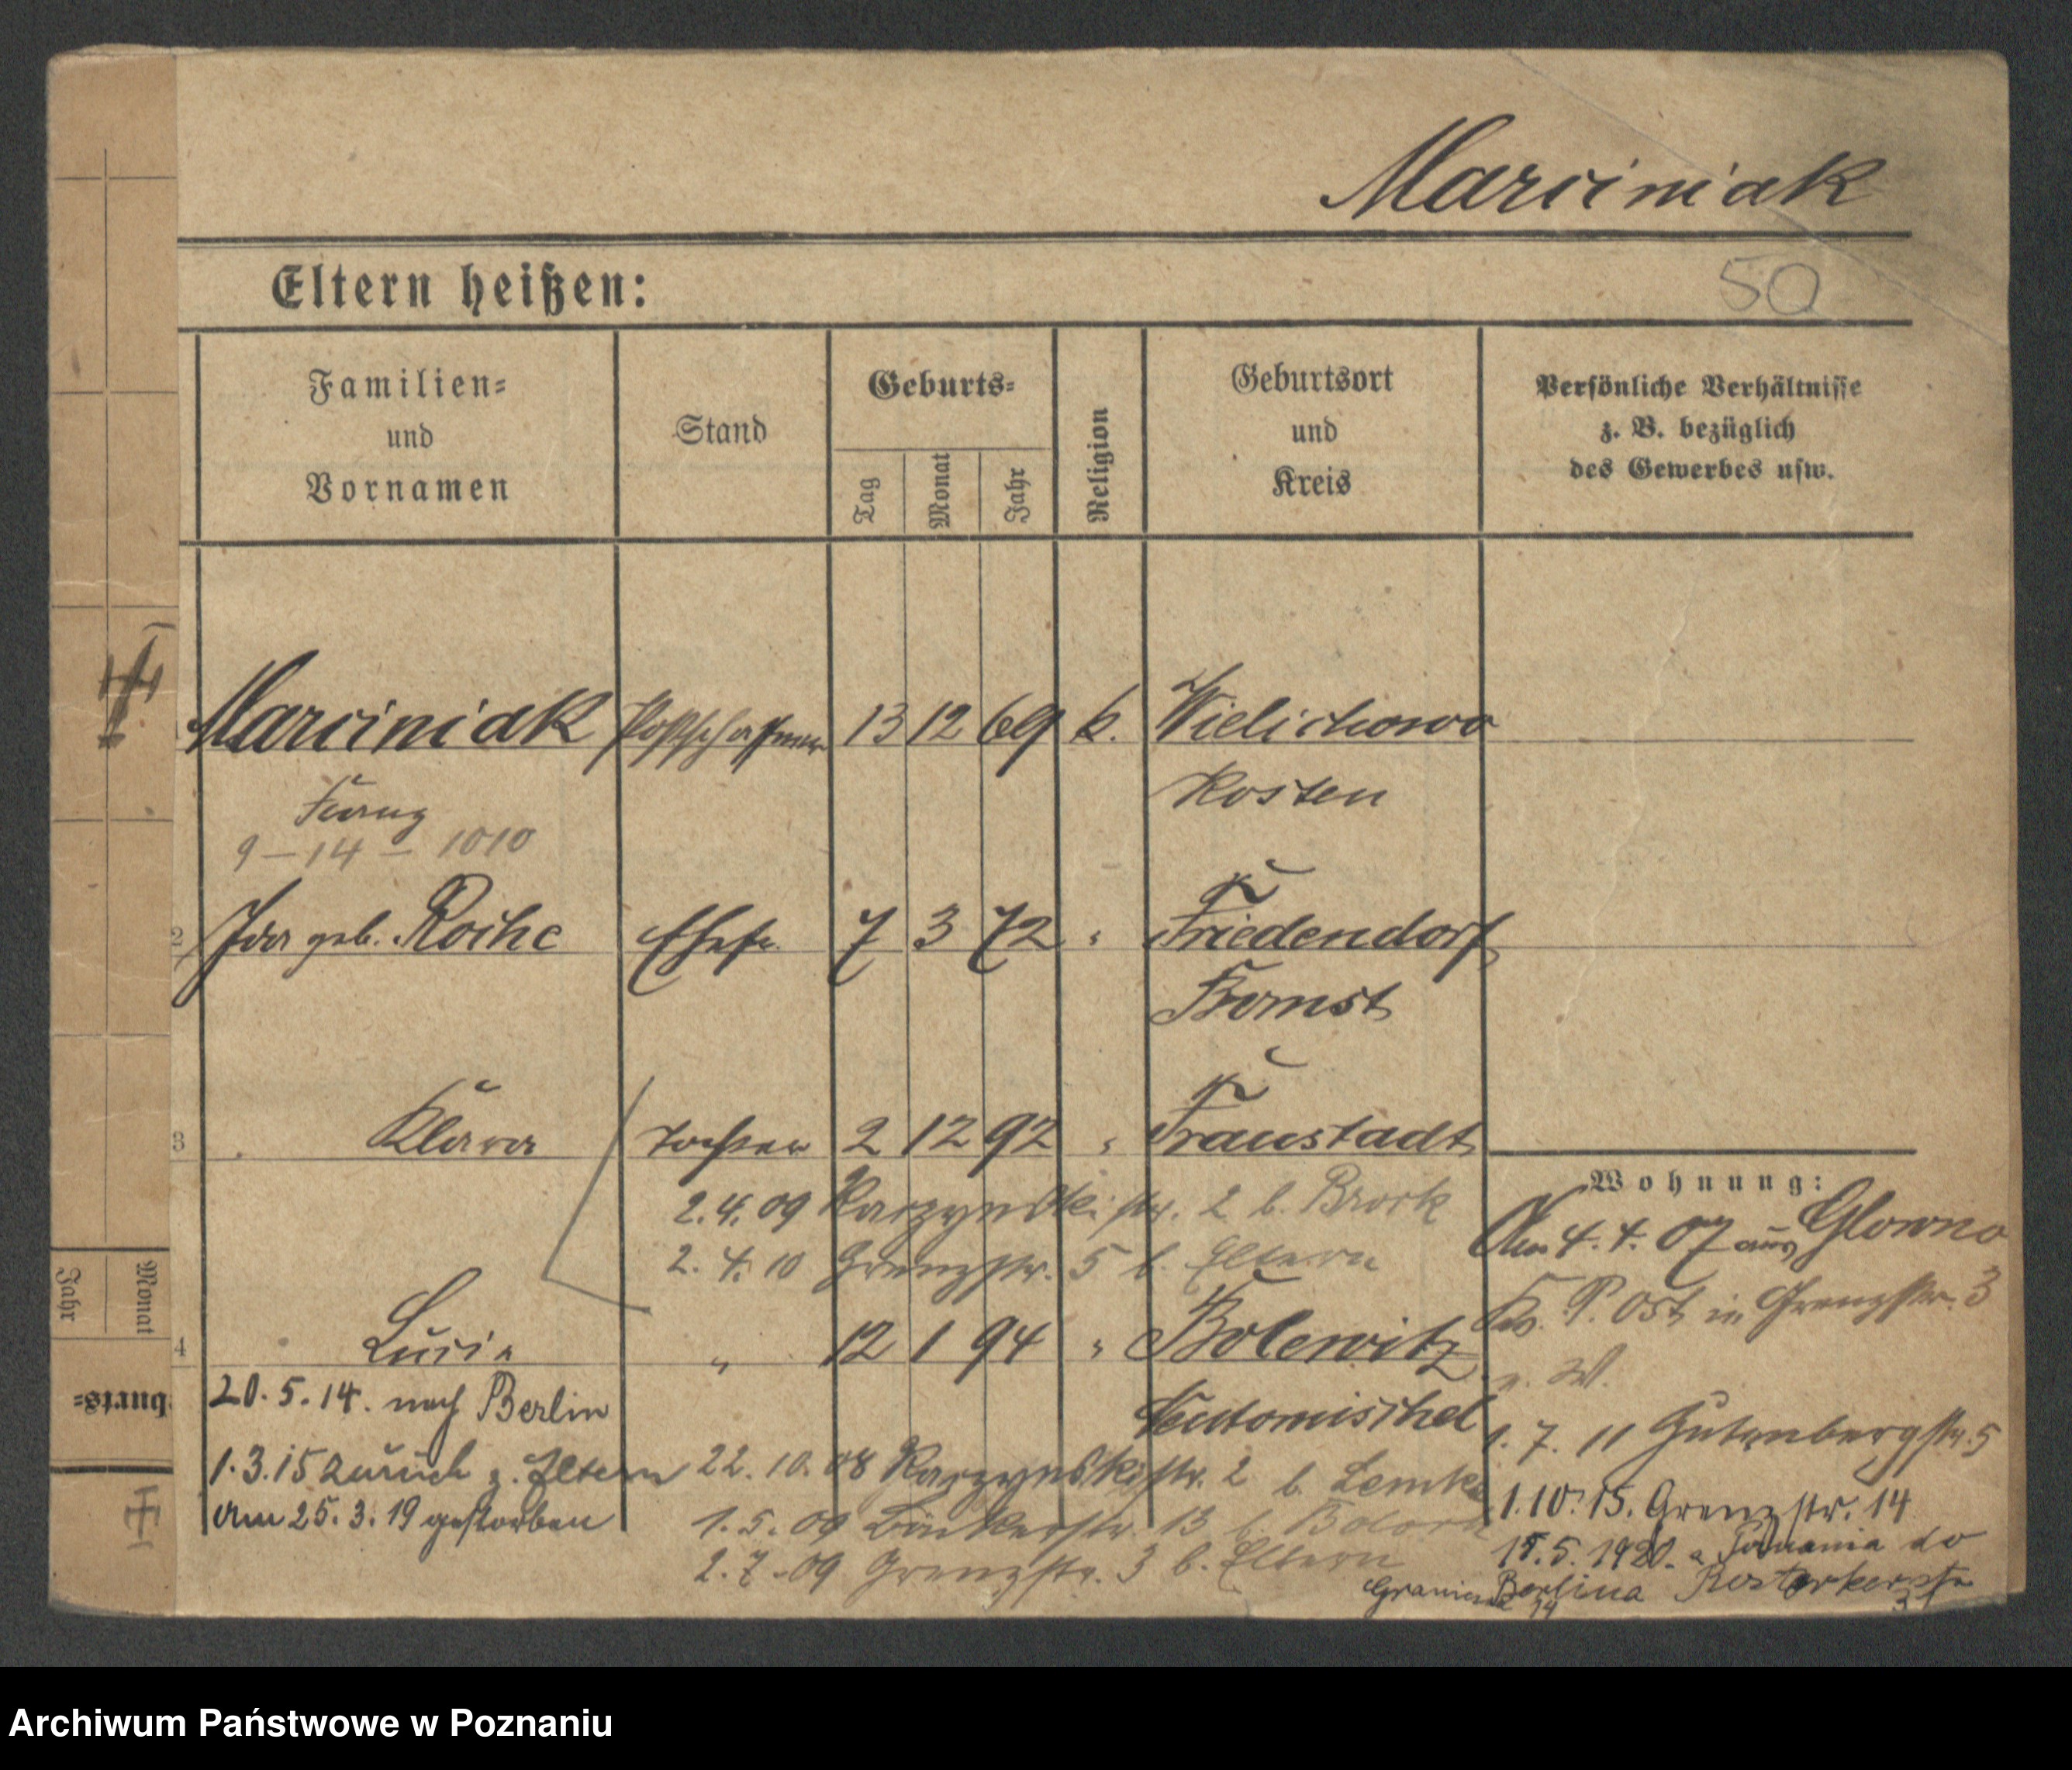 Marciniak
Eltern heißen:
50
Familien-
und
Vornamen
Stand
Geburts-
Tag
Monat
Jahr
Religion
Geburtsort
und
Kreis
Persönliche Verhältnisse
z. B. bezüglich
des Gewerbes usw.
Marciniak Postschaffner 13 12 69 k. Wielichowo
Franz
Kosten
9 – 14 – 1010
2 Ida geb. Ehefr. 7 3 72 " Friedendorf
Bomst
3 Klara Tochter 2 12 92 " Fraustadt
2.4.09 Raczynskistr. 2 b. Brock
2.4.10 Grenzstr. 5 b. Eltern
Wohnung:
4.4.07 aus Glowno
P. Ost in Grenzstr. 3
4 Lucia " 12 1 94 " Bolewitz
Neutomischel
20.5.14. nach Berlin
1.3.15 zurück z. Eltern
am 25.3.19 gestorben
22.10.08 Raczynskistr. 2 b. Lemke
1.5.09 13 b.
2.7.09 Grenzstr. 3 b. Eltern
1.7.11 Gutenbergstr. 5
1.10.15. Grenzstr. 14
.5.1920. z Poznania do
Berlina
Monat
Jahr
burts-
Archiwum Państwowe w Poznaniu